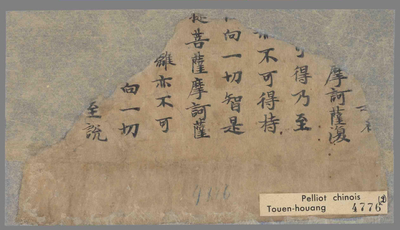 摩訶薩復
可得乃至
亦不可得持
向一切智是
菩薩摩訶薩
維亦不可
向一切
至説
466
Pelliot chinois
Touen-houang 4776